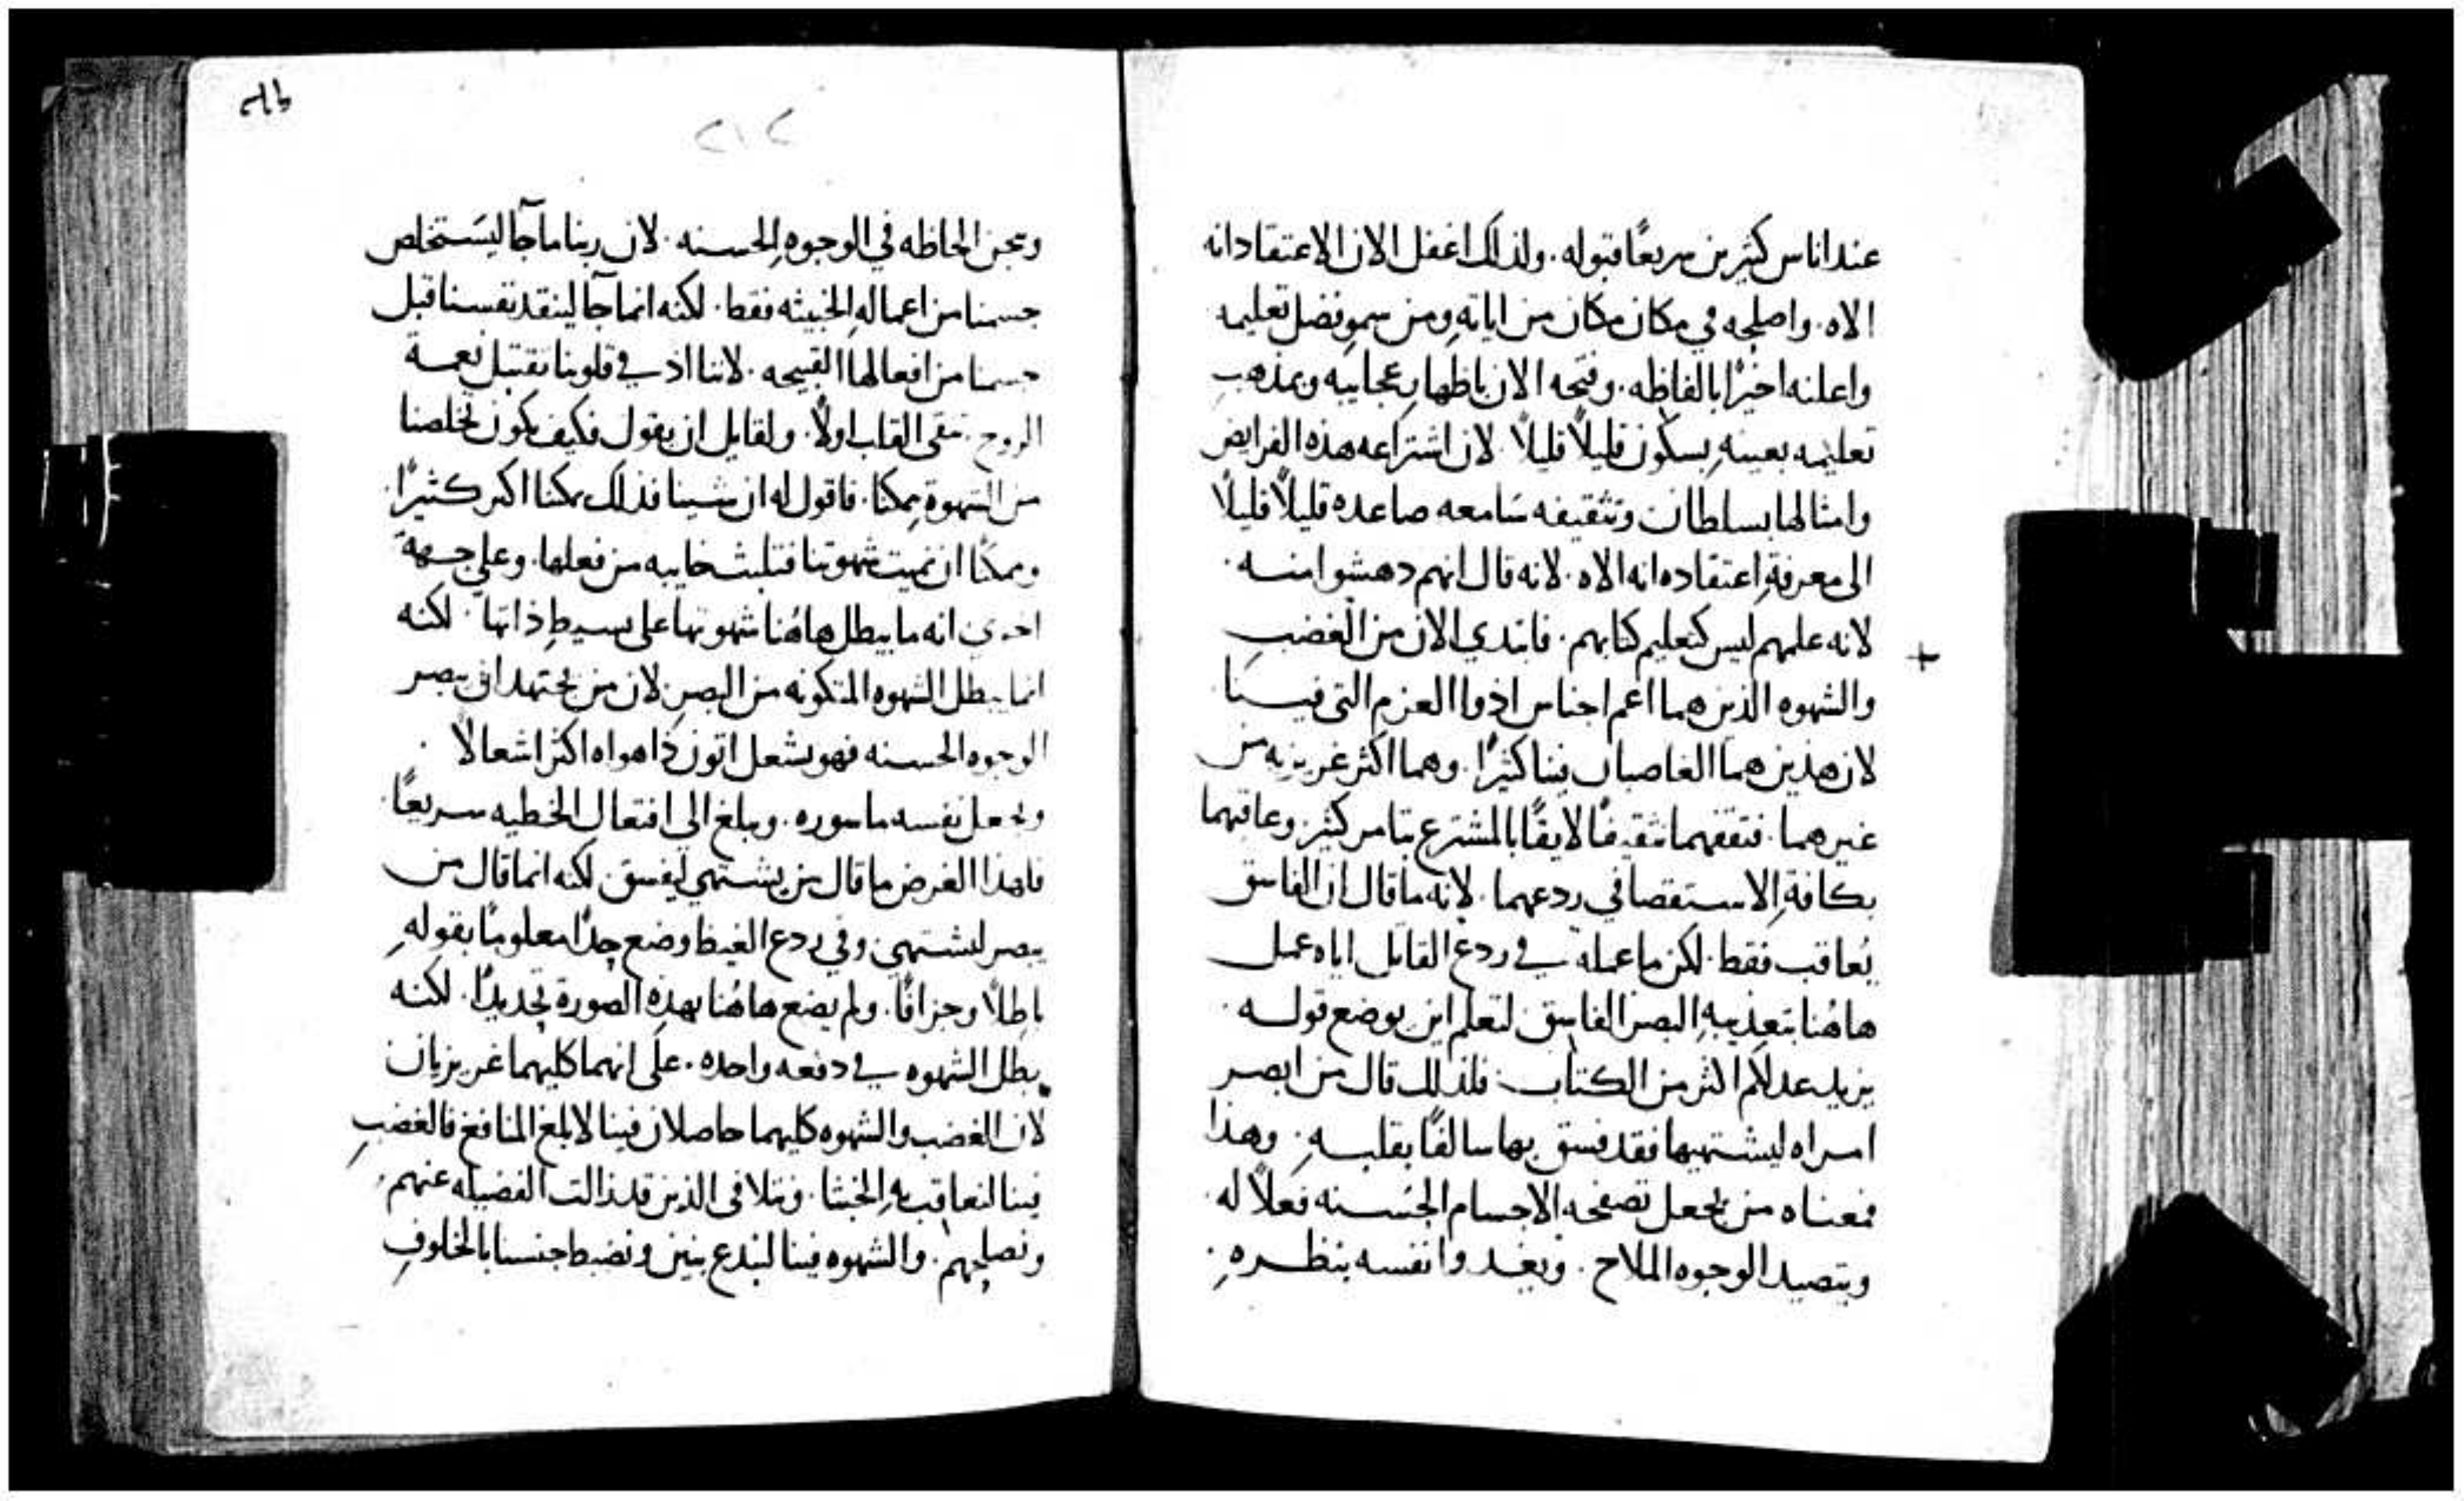 عند اناس كثيرين سريعًا قبوله. ولذلك اغفل الان الاعتقاد انه
الاه. واصلحه في مكان مكان من اياته ومن سمو فضل تعليمه
واعلنه اخيرًا بالفاظه. وفتحه الان باظهار عجايبه وبمذهب
تعليمه بعينه بسكون قليلاً قليلاً. لان اشتراعه هذه الفرايض
وامثالها بسلطان وتثقيفه سَامعه صاعده قليلاً قليلاً
الى معرفةِ اعتقاده انه الاه. لانه قال انهم دهشوا منه.
لانه علمهم ليس كتعليم كتابهم. فابتدي الان من الغضب
+
والشهوه الذين هما اعم اجناس ادوا العزم التي فينا
لان هذين هما الغاصبان فينا كثيرًا. وهما اكثر غريزيه من
غيرهما. فثقفهما تثقيفًا لايقًا بالمشترع بتامر كثير وعاقبهما
بكافةِ الاستقصا في ردعهما. لانه ما قال ان الفاسق
يُعاقب فقط. لكن ما عمله في ردع القاتل اياه عمل
هاهُنا بتعذيبهِ البصر الفاسق لتعلم اين يوضع قوله
يزيد عدلكم اكثر من الكتاب. فلذلك قال من ابصر
امراه ليشتهيها فقد فسق بها سالفًا بقلبهِ. وهذا
فمعناه من يجعل تصفحه الاجسام الحُسنه فعلاً له
ويتصيد الوجوه الملاح. ويغدوا نفسه بنظرهِ.
٢١٢
وعجن الحاظه في الوجوهِ الحسنه. لان ربنا ما جآ ليسَتخلص
جسمنا من اعمالهِ الخبيثه فقط. لكنه انما جآ لينقد نفسنا قبل
جسمنا من افعالها القبيحه. لاننا اذ في قلوبنا نقتبل نعمة
الروح. تنقى القلب اولاً. ولقايل ان يقول فكيف يكون تخلصنا
من الشهوة ممكنًا. فاقول له ان شينا فذلك ممكنًا اكبر كثيرًا.
وممكنًا ان نميت شهوتنا فتلبث خايبه من فعلها. وعلى جهةٍ
اخري انه ما يبطل هاهُنا شهوتها على بسيطِ ذاتها. لكنه
انما يبطل الشهوه المتكونه من البصرِ لان من يجتهد ان يبصر
الوجوه الحسنه فهو يشعل اتون ذا هواه اكثر اشعالاً.
ويجعل نفسه ماسوره. ويبلغ الى افتعال الخطيه سريعًا.
فلهذا الغرض ما قال من يشتهي ليفسق. لكنه انما قال من
يبصر ليشتهي. وفي ردع الغيظ وضع حدًا معلومًا بقولهِ
باطلاً وجزافًا. ولم يضع هاهُنا بهذهِ الصورة تحديدًا. لكنه
يبطل الشهوه في دفعه واحده. على انهما كليهما غريزيان
لان الغضب والشهوه كليهما حاصلان فينا لابلغ المنافع فالغضب
فينا لنعاقب بهِ الخبثا. ونتلافى الذين قد زالت الفضيله عنهم.
ونصلحهم. والشهوه فينا لنبدع بنين ونضبط جنسنا بالخلوفِ